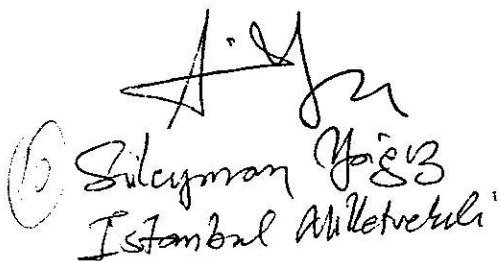 Süleyman Yağız
İstanbul Milletvekili